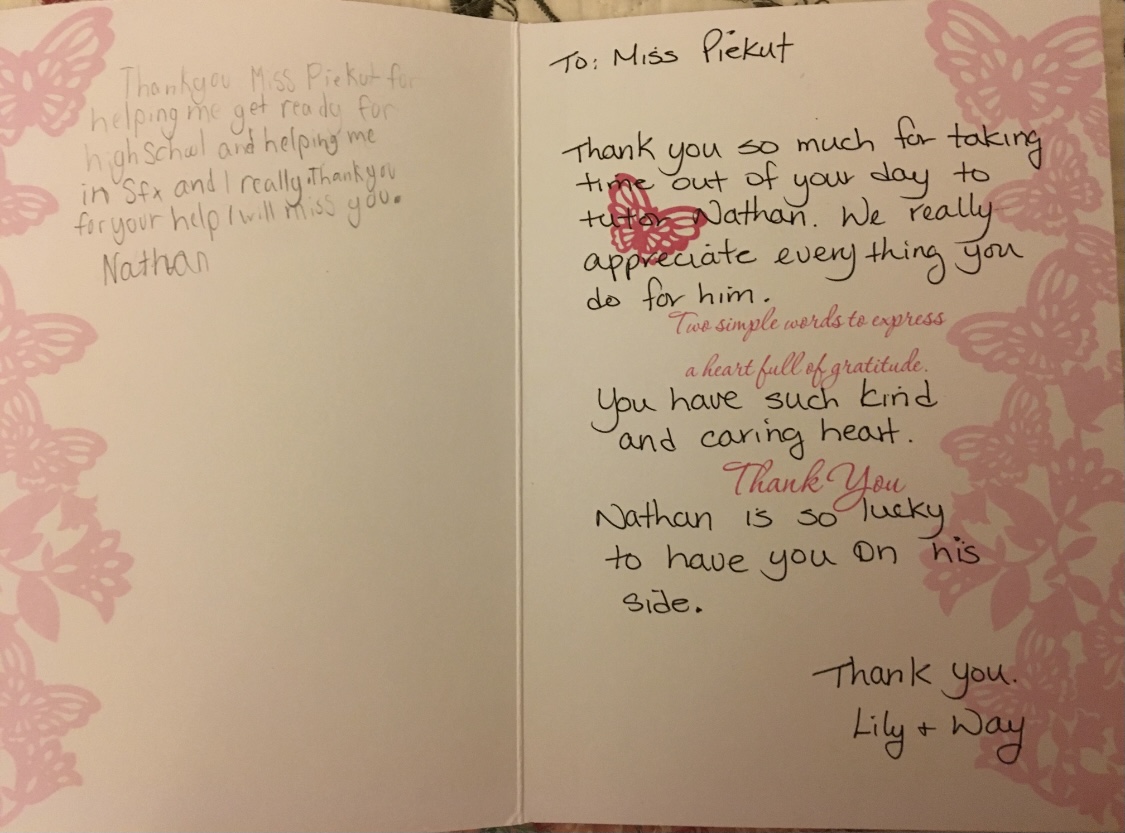 Thankyou Miss Piekut for
helping me get ready for
high School and helping me
in Sfx and I really.Thankyou
for your help I will miss you.
Nathan
To: Miss Piekut
Thank you so much for taking
time out of your day to
tutor Nathan. We really
appreciate everything you
do for him.
Two simple words to express
a heart full of gratitude.
You have such kind
and caring heart.
Thank You
Nathan is so lucky
to have you on his
side.
Thank you.
Lily + Way